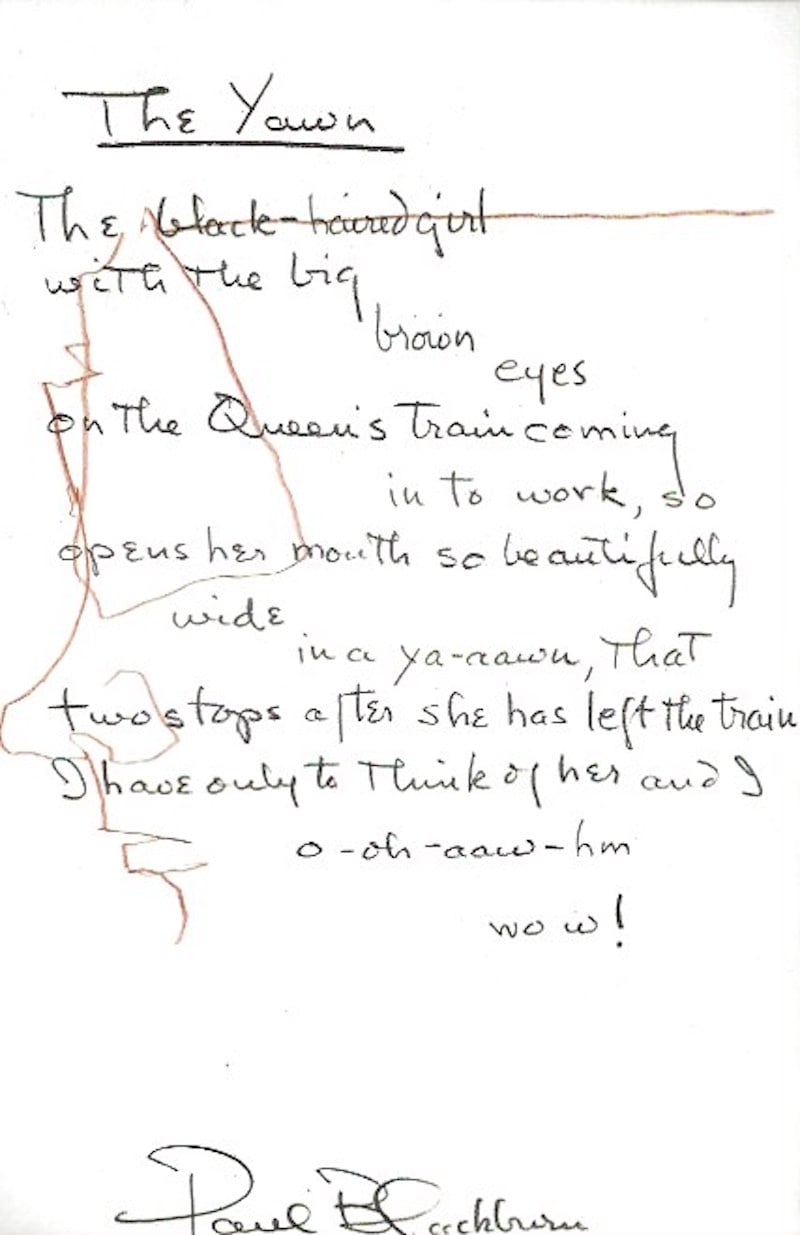 The Yawn
The black-haired girl
with the big
brown
eyes
on the Queen's train coming
in to work, so
opens her mouth so beautifully
wide
in a ya-aawn, that
two stops after she has left the train
I have only to think of her and I
o-oh-aaw-hm
wow!
Paul Blackburn